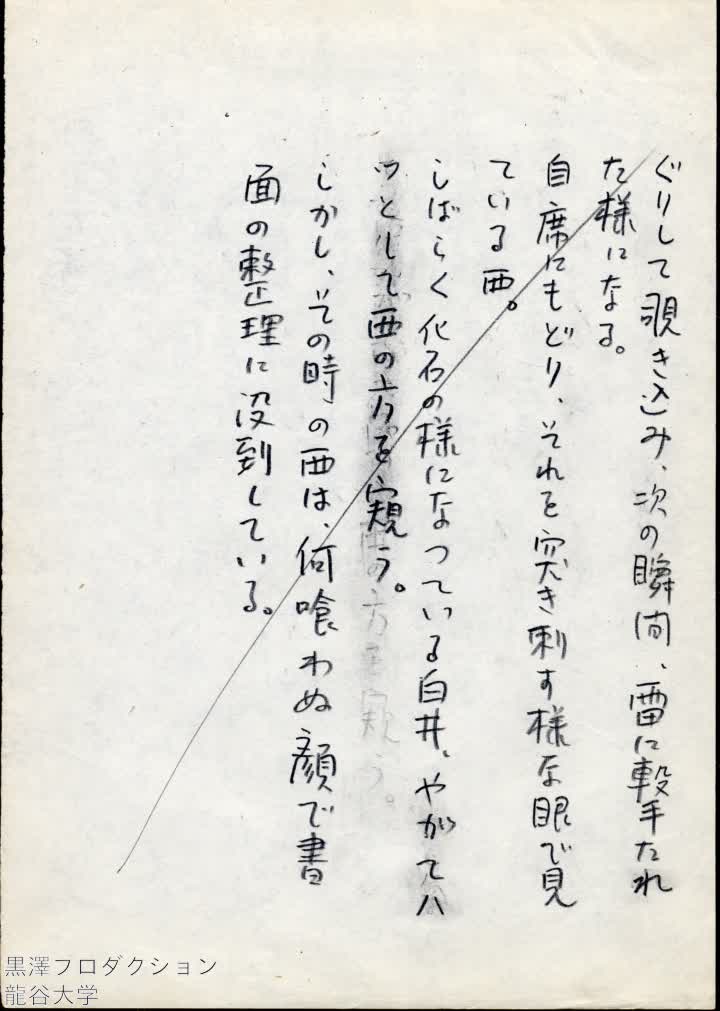 ぐりして覗き込み、次の瞬間、雷に撃たれ
た様になる。
自席にもどり、それを突き刺す様な眼で見
ている西。
しばらく化石の様になつている白井、やがてハ
ッとして西の方を窺う。
しかし、その時の西は、何喰わぬ顔で書
面の整理に没到している。
黒澤プロダクション
龍谷大学